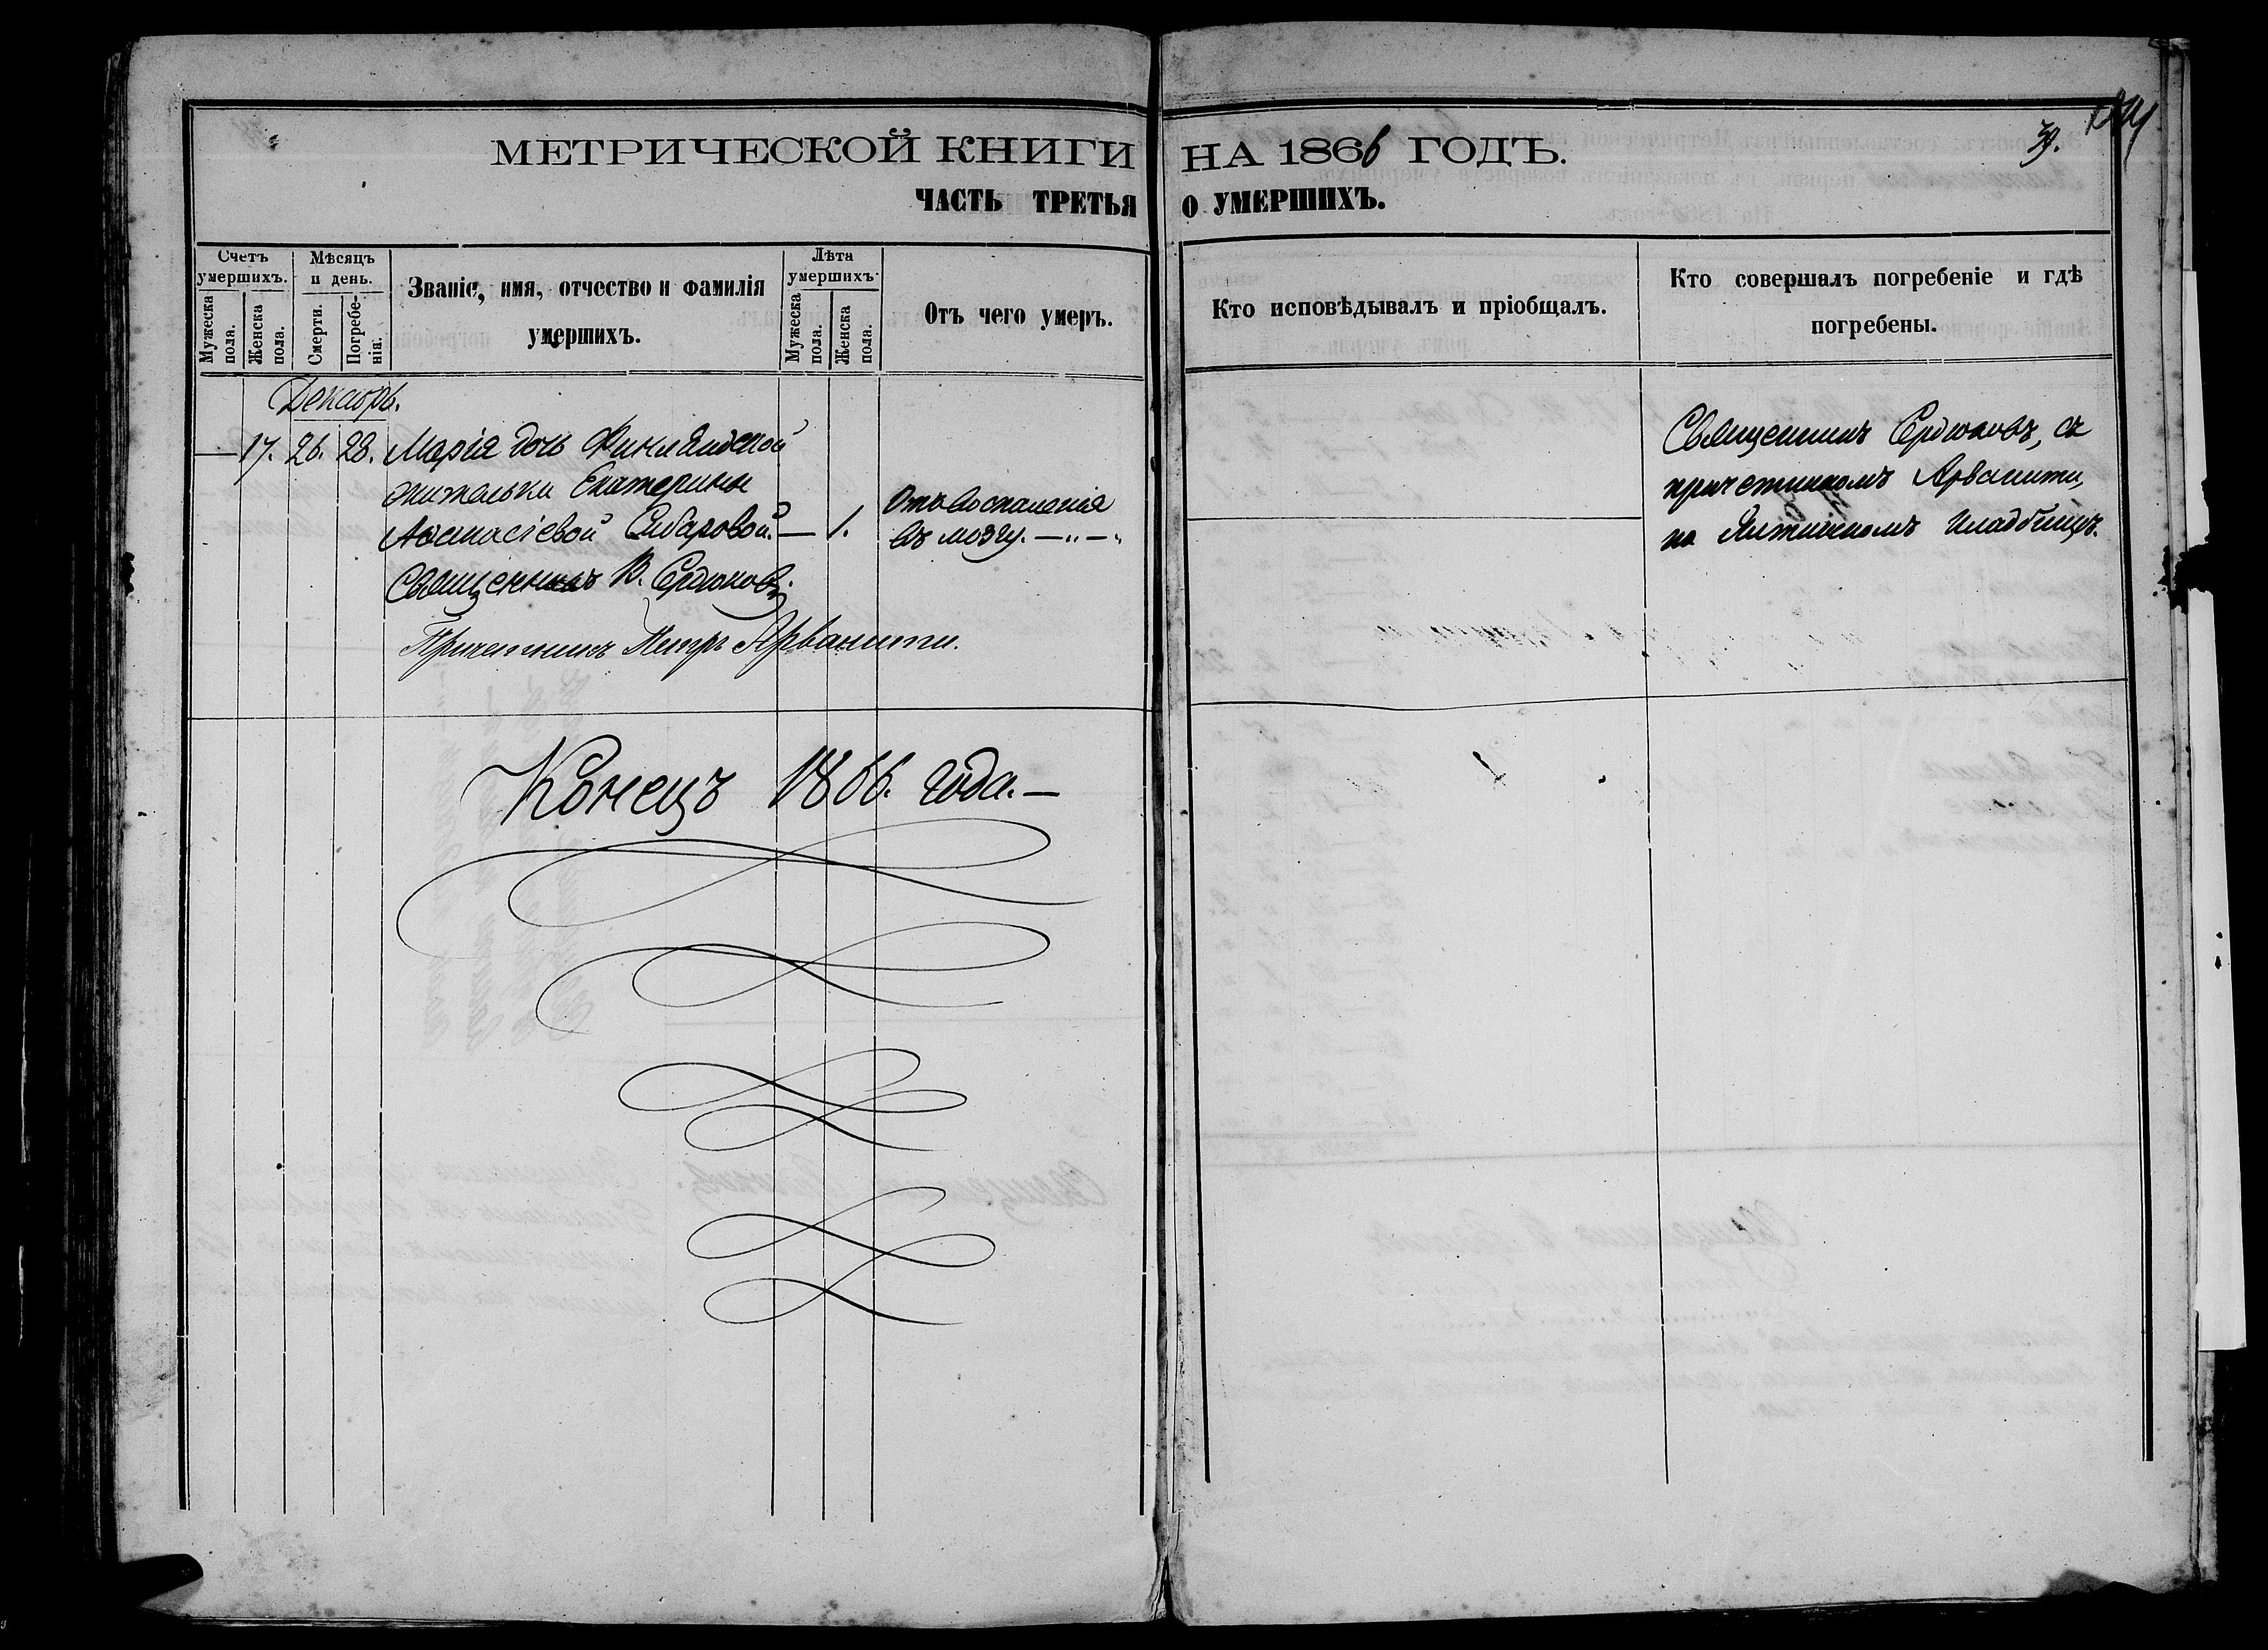 МЕТРИЧЕСКОЙ КНИГИ НА 1866 ГОДЪ.
39.
ЧАСТЬ ТРЕТЬЯ О УМЕРШИХЪ.
Счетъ умершихъ.
Мужеска пола.
Женска пола.
Мѣсяцъ и день.
Смерти.
Погребенія.
Званіе, имя, отчество и фамилія
умершихъ.
Лѣта умершихъ.
Мужеска пола.
Женска пола.
Отъ чего умеръ.
Кто исповѣдывалъ и пріобщалъ.
Кто совершалъ погребеніе и гдѣ
погребены.
Декабрь.
— 17. 26. 28. Марія дочь Финляндской
жительки Екатерины
Аѳанасіевой — 1.
Отъ воспаленія
въ мозгу. —„—„
Священникъ Сердюковъ, съ
причетникомъ Арванити,
на Ялтинскомъ кладбищѣ.
Священникъ В. Сердюковъ.
Причетникъ Петръ Арванити.
Конецъ 1866. года.—